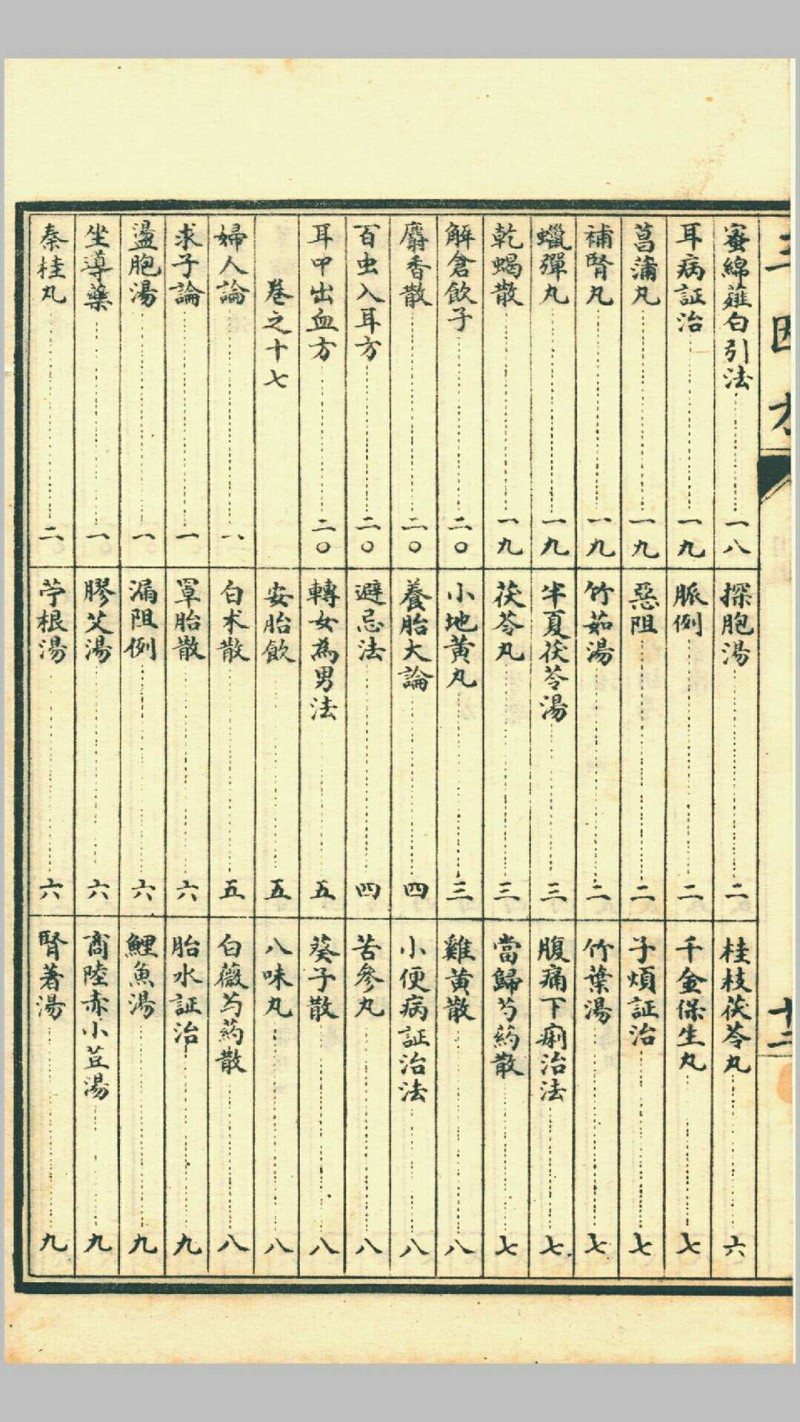 三因方
蜜綿薤白引法 一八
耳病証治 一九
菖蒲丸 一九
補腎丸 一九
蠟彈丸 一九
乾蝎散 一九
解倉飲子 二〇
麝香散 二〇
百虫入耳方 二〇
耳中出血方 二〇
卷之十七
婦人論 一
求子論 一
盪胞湯 一
坐導藥 一
秦桂丸 二
探胞湯 二
脈例 二
惡阻 二
竹茹湯 二
半夏茯苓湯 三
茯苓丸 三
小地黃丸 三
養胎大論 四
避忌法 四
轉女為男法 五
安胎飲 五
白朮散 五
罩胎散 六
漏阻例 六
膠艾湯 六
苧根湯 六
桂枝茯苓丸 六
千金保生丸 七
子煩証治 七
竹葉湯 七
腹痛下痢治法 七
當歸芍藥散 七
雞黃散 八
小便病証治法 八
苦參丸 八
葵子散 八
八味丸 八
白薇芍藥散 八
胎水証治 九
鯉魚湯 九
商陸赤小荳湯 九
腎著湯 九
十二